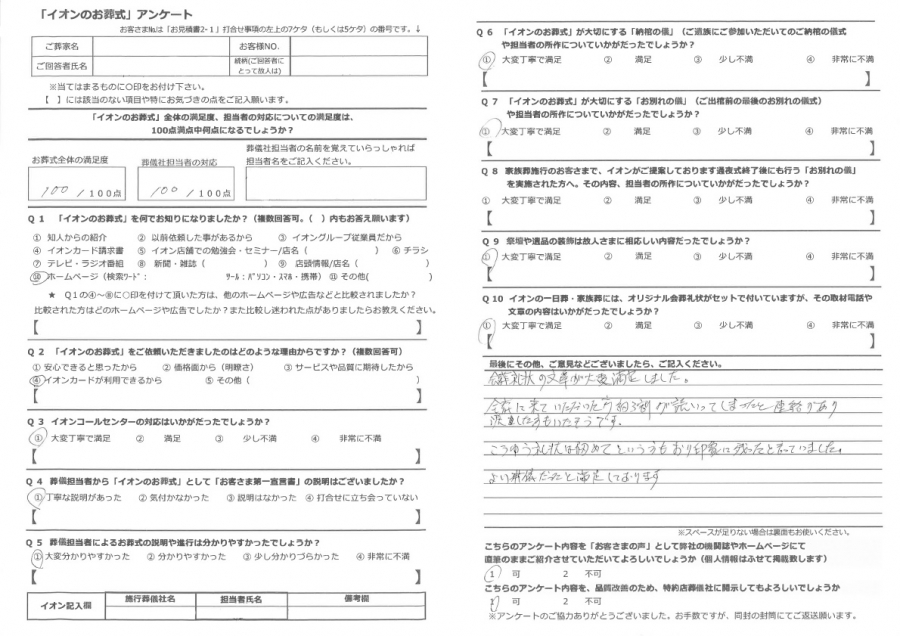 「イオンのお葬式」アンケート
お客さま№は「お見積書2-1」打合せ事項の左上の7ケタ（もしくは5ケタ）の番号です。↓
ご葬家名 お客様NO.
ご回答者氏名 続柄(ご回答者にとって故人は)
※当てはまるものに○印をお付け下さい。
【 】には該当のない項目や特にお気づきの点をご記入願います。
「イオンのお葬式」全体の満足度、担当者の対応についての満足度は、
100点満点中何点になるでしょうか？
お葬式全体の満足度 葬儀社担当者の対応 葬儀社担当者の名前を覚えていらっしゃれば
担当者名をご記入ください。
100 / 100点 100 / 100点
Q 1 「イオンのお葬式」を何でお知りになりましたか？（複数回答可。（ ）内もお答え願います）
① 知人からの紹介 ② 以前依頼した事があるから ③ イオングループ従業員だから
④ イオンカード請求書 ⑤ イオン店舗での勉強会・セミナー/店名（ ）⑥ チラシ
⑦ テレビ・ラジオ番組 ⑧ 新聞・雑誌（ ） ⑨ 店頭情報/店名（ ）
⑩ ホームページ（検索ﾜｰﾄﾞ： ﾂｰﾙ：ﾊﾟｿｺﾝ・ｽﾏﾎ・携帯） ⑪ その他( )
★ Q１の④～⑩に○印を付けて頂いた方は、他のホームページや広告などと比較されましたか？
比較された方はどのホームページや広告でしたか？また比較し迷われた点がありましたらお教えください。
【 】
Q 2 「イオンのお葬式」をご依頼いただきましたのはどのような理由からですか？（複数回答可）
① 安心できると思ったから ② 価格面から（明瞭さ） ③ サービスや品質に期待したから
④ イオンカードが利用できるから ⑤ その他（ ）
【 】
Q 3 イオンコールセンターの対応はいかがだったでしょうか？
① 大変丁寧で満足 ② 満足 ③ 少し不満 ④ 非常に不満
【 】
Q 4 葬儀担当者から「イオンのお葬式」として「お客さま第一宣言書」の説明はございましたか？
① 丁寧な説明があった ② 気付かなかった ③ 説明はなかった ④ 打合せに立ち会っていない
【 】
Q 5 葬儀担当者によるお葬式の説明や進行は分かりやすかったでしょうか？
① 大変分かりやすかった ② 分かりやすかった ③ 少し分かりづらかった ④ 非常に不満
【 】
イオン記入欄 施行葬儀社名 担当者氏名 備考欄
Q 6 「イオンのお葬式」が大切にする「納棺の儀」（ご遺族にご参加いただいてのご納棺の儀式
や担当者の所作についていかがだったでしょうか？
① 大変丁寧で満足 ② 満足 ③ 少し不満 ④ 非常に不満
【 】
Q 7 「イオンのお葬式」が大切にする「お別れの儀」（ご出棺前の最後のお別れの儀式）
や担当者の所作についていかがだったでしょうか？
① 大変丁寧で満足 ② 満足 ③ 少し不満 ④ 非常に不満
【 】
Q 8 家族葬施行のお客さまで、イオンがご提案しております通夜式終了後にも行う「お別れの儀」
を実施された方へ。その内容、担当者の所作についていかがだったでしょうか？
① 大変丁寧で満足 ② 満足 ③ 少し不満 ④ 非常に不満
【 】
Q 9 祭壇や遺品の装飾は故人さまに相応しい内容だったでしょうか？
① 大変丁寧で満足 ② 満足 ③ 少し不満 ④ 非常に不満
【 】
Q 10 イオンの一日葬・家族葬には、オリジナル会葬礼状がセットで付いていますが、その取材電話や
文章の内容はいかがだったでしょうか？
① 大変丁寧で満足 ② 満足 ③ 少し不満 ④ 非常に不満
【 】
最後にその他、ご意見などございましたら、ご記入ください。
会葬礼状の文章が大変満足しました。
会葬に来ていただいた方約3割が読いってしまったと連絡があり
涙ました方もいたそうです。
こうゆう礼状は初めてという方もおり印象に残ったと言っていました。
よい葬儀だったと満足しております
※スペースが足りない場合は裏面もお使いください。
こちらのアンケート内容を「お客さまの声」として弊社の機関誌やホームページにて
直筆のままご紹介させていただいてよろしいでしょうか（個人情報はふせて掲載致します）
1 可 2 不可
こちらのアンケート内容を、品質改善のため、特約店葬儀社に開示してもよろしいでしょうか
1 可 2 不可
※アンケートのご協力ありがとうございました。お手数ですが、同封の封筒にてご返送願います。